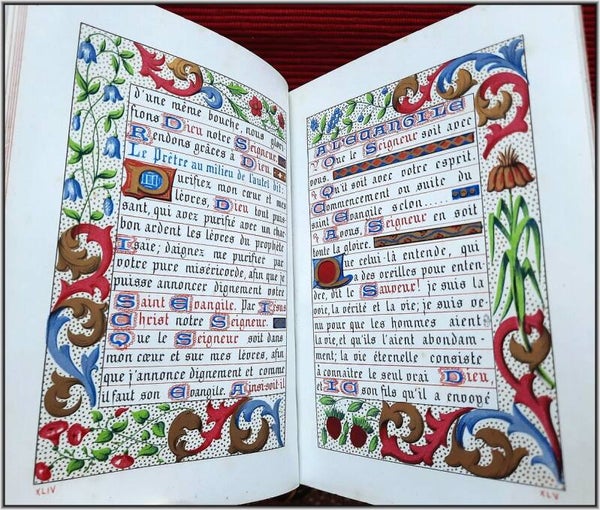 d'une même bouche, nous glori
fions Dieu notre Seigneur.
Rendons grâces à Dieu
Le Prêtre au milieu de l'autel dit:
Purifiez mon cœur et mes
lèvres, Dieu tout puis
sant, qui avez purifié avec un char
bon ardent les lèvres du prophète
Isaïe; daignez me purifier par
votre pure miséricorde, afin que je
puisse annoncer dignement votre
Saint Evangile. Par Jésus
Christ notre Seigneur.
Que le Seigneur soit dans
mon cœur et sur mes lèvres, afin
que j'annonce dignement et comme
il faut son Evangile. Ainsi soit-il
XLIV
A L'EVANGILE
Que le Seigneur soit avec
vous.
Qu'il soit avec votre esprit.
Commencement ou suite du
saint Evangile selon.....
A vous, Seigneur en soit
toute la gloire.
Que celui-là entende, qui
a des oreilles pour enten
dre, dit le Sauveur! je suis
la voie, la vérité et la vie; je suis ve
nu pour que les hommes aient
la vie, et qu'ils l'aient abondam
ment; la vie éternelle consiste
à connaître le seul vrai Dieu
et son fils qu'il a envoyé
XLV